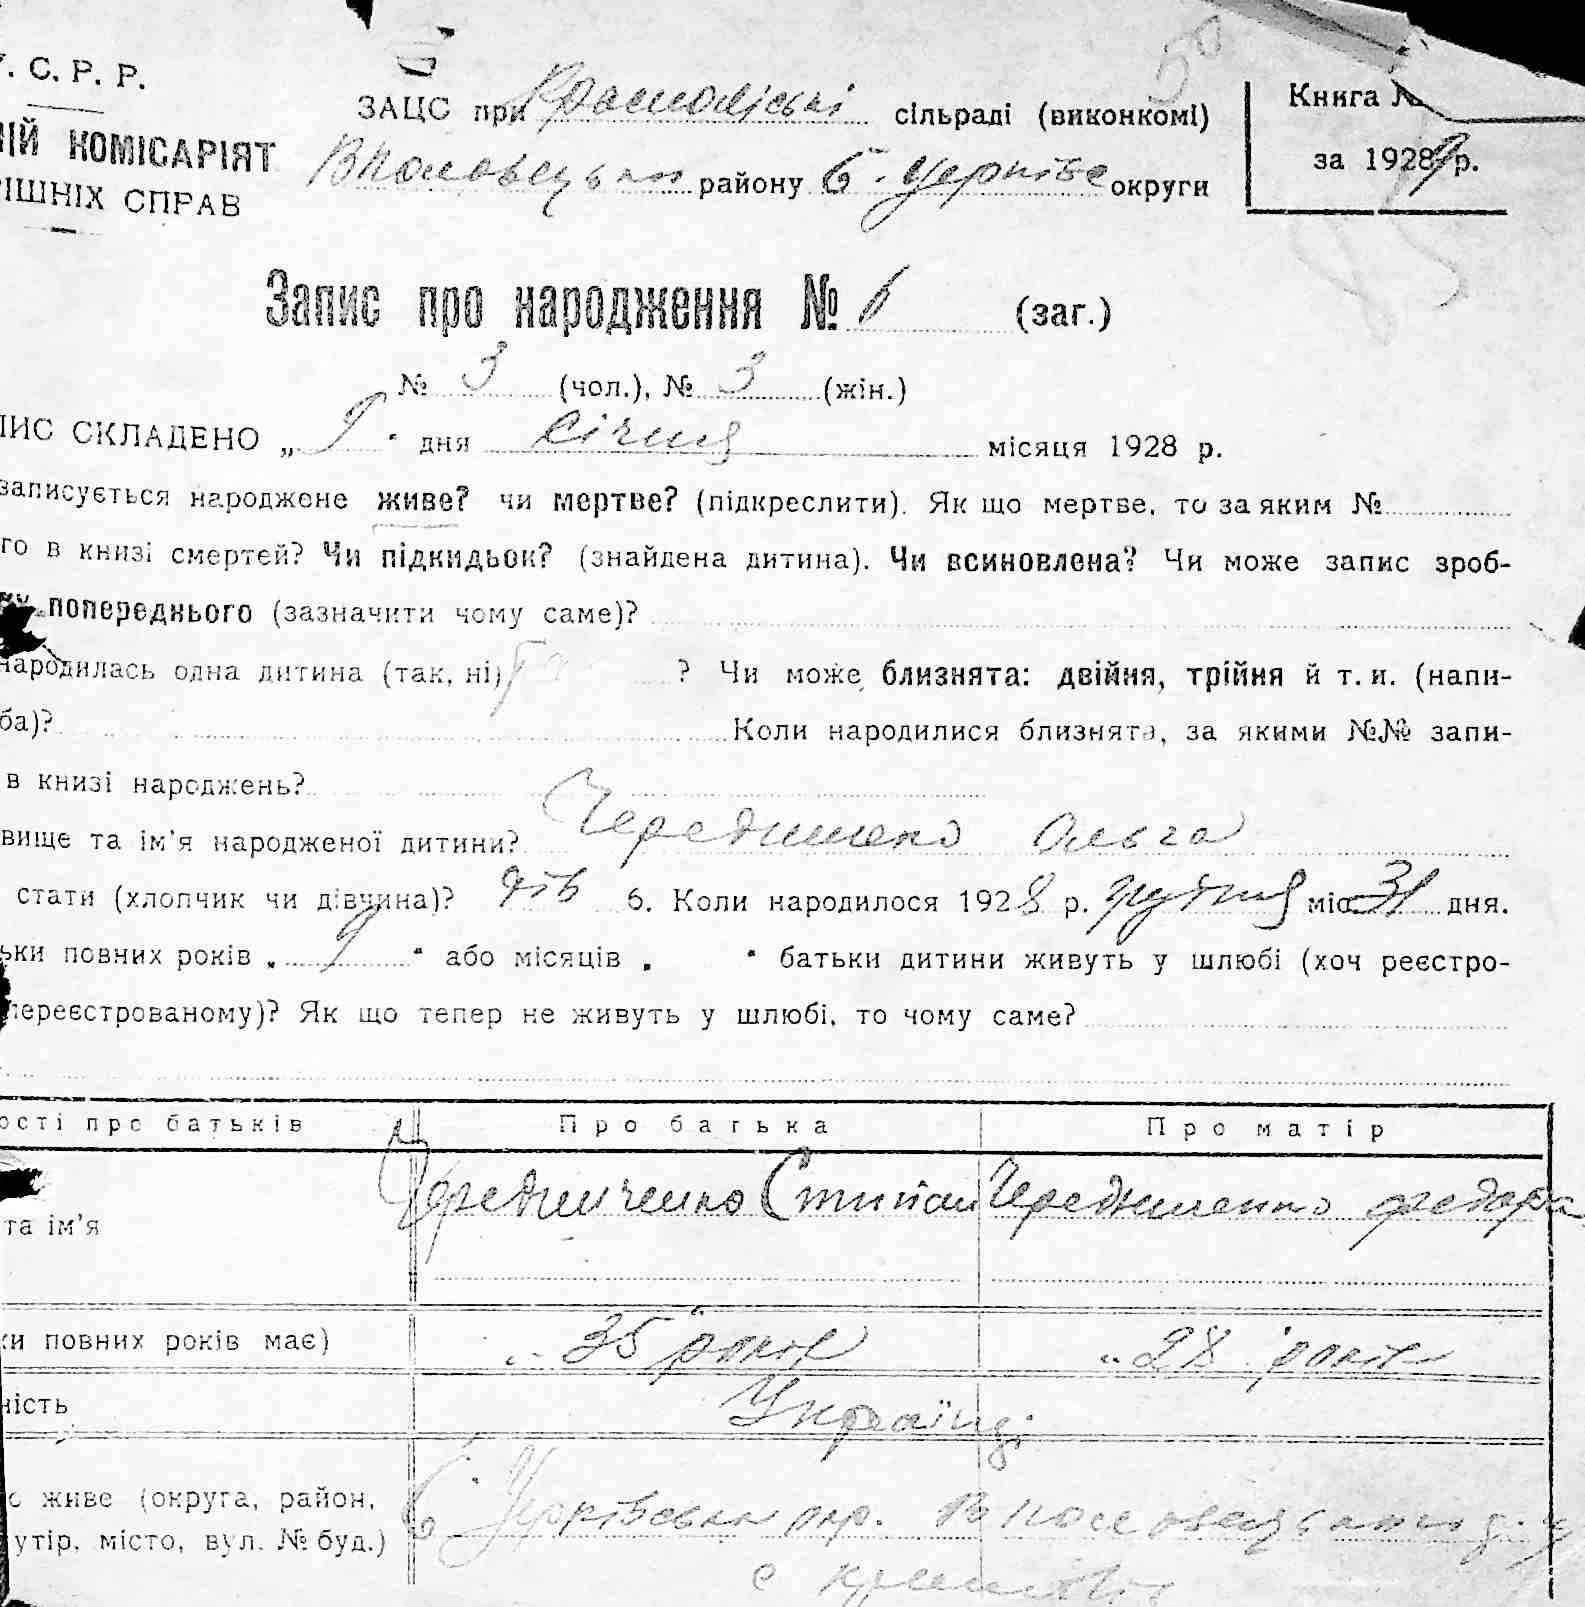 У. С. Р. Р.
ЗАЦС при сільраді (виконкомі)
Книга №
КОМІСАРІЯТ
району Б. Черніг округи
за 1929 р.
СПРАВ
Запис про народження № 6 (заг.)
№ 3 (чол.), № 3 (жін.)
СКЛАДЕНО „ 9 " дня Січня місяця 1928 р.
записується народжене живе? чи мертве? (підкреслити). Як що мертве, то за яким №
го в книзі смертей? Чи підкидьок? (знайдена дитина). Чи всиновлена? Чи може запис зроб-
попереднього (зазначити чому саме)?
народилась одна дитина (так, ні) ? Чи може близнята: двійня, трійня й т. и. (напи-
ба)? Коли народилися близнята, за якими №№ запи-
в книзі народжень?
вище та ім'я народженої дитини? Чередниченко Ольга
стати (хлопчик чи дівчина)? дів 6. Коли народилося 1928 р. грудня міс. 31 дня.
ьки повних років „ 9 " або місяців „ " батьки дитини живуть у шлюбі (хоч реєстро-
переєстрованому)? Як що тепер не живуть у шлюбі, то чому саме?
ості про батьків Про батька Про матір
та ім'я Чередниченко Степан Чередниченко Федора
ки повних років має) 35 років 28 років
ність Українці
живе (округа, район, Б Чернігівська окр.
утір, місто, вул. № буд.)